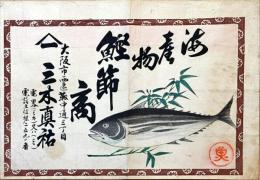 海産物
鰹節
商
大阪市西区靱中通三丁目
三木真祐